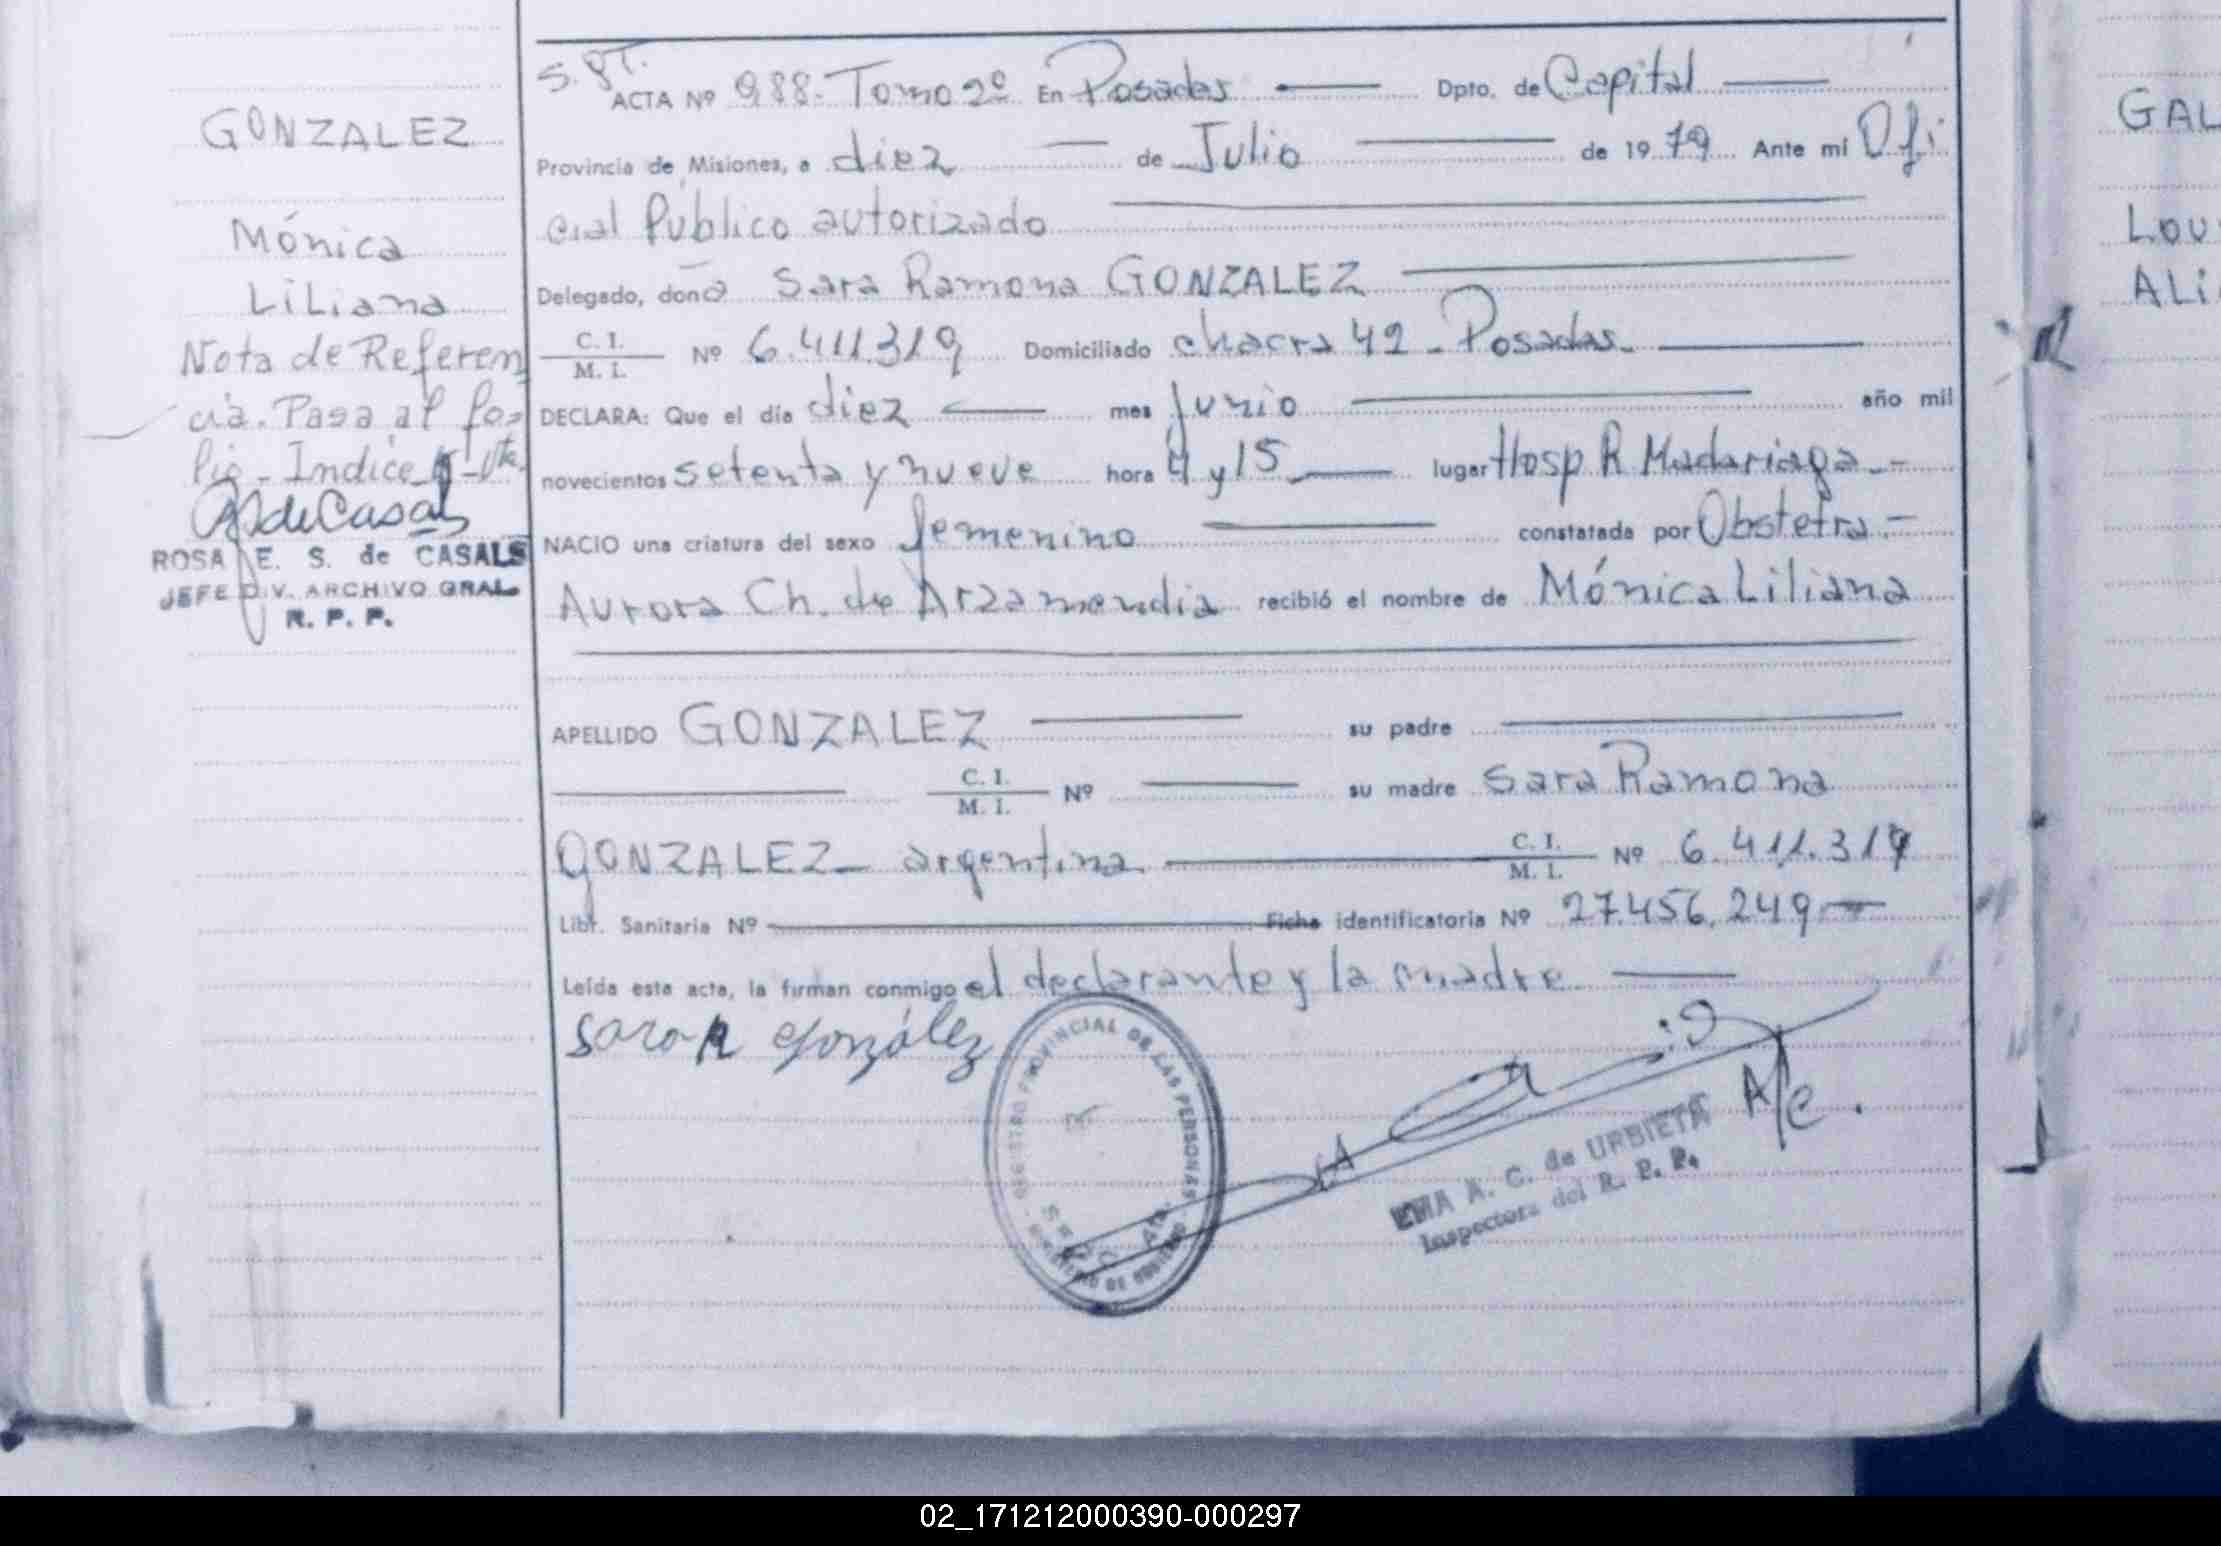 GONZALEZ
Mónica
Liliana
Nota de Referen
cia. Pasa al fo=
lio - Indice
deCasals
ROSA E. S. de CASALS
JEFE DIV. ARCHIVO GRAL.
R. P. P.
S. gT.
ACTA Nº 988. Tomo 2º En Posadas Dpto. de Capital
Provincia de Misiones, a diez de Julio de 1979 Ante mi Ofi
cial Público autorizado
Delegado, doña Sara Ramona GONZALEZ
C. I. / M. I. Nº 6.411.319 Domiciliado chacra 42 - Posadas -
DECLARA: Que el día diez mes junio año mil
novecientos setenta y nueve hora 4 y 15 lugar Hosp R Madariaga -
NACIO una criatura del sexo femenino constatada por Obstetra -
Aurora Ch. de Arzamendia recibió el nombre de Mónica Liliana
APELLIDO GONZALEZ su padre
C. I. / M. I. Nº su madre Sara Ramona
GONZALEZ - argentina C. I. / M. I. Nº 6.411.319
Libr. Sanitaria Nº Ficha identificatoria Nº 27.456.249
Leída esta acta, la firman conmigo el declarante y la madre
Sara R González
REGISTRO PROVINCIAL DE LAS PERSONAS
A/c.
EMA A. C. de URBIETA
Inspectora del R. P. P.
GAL
Lou
ALi
02_171212000390-000297